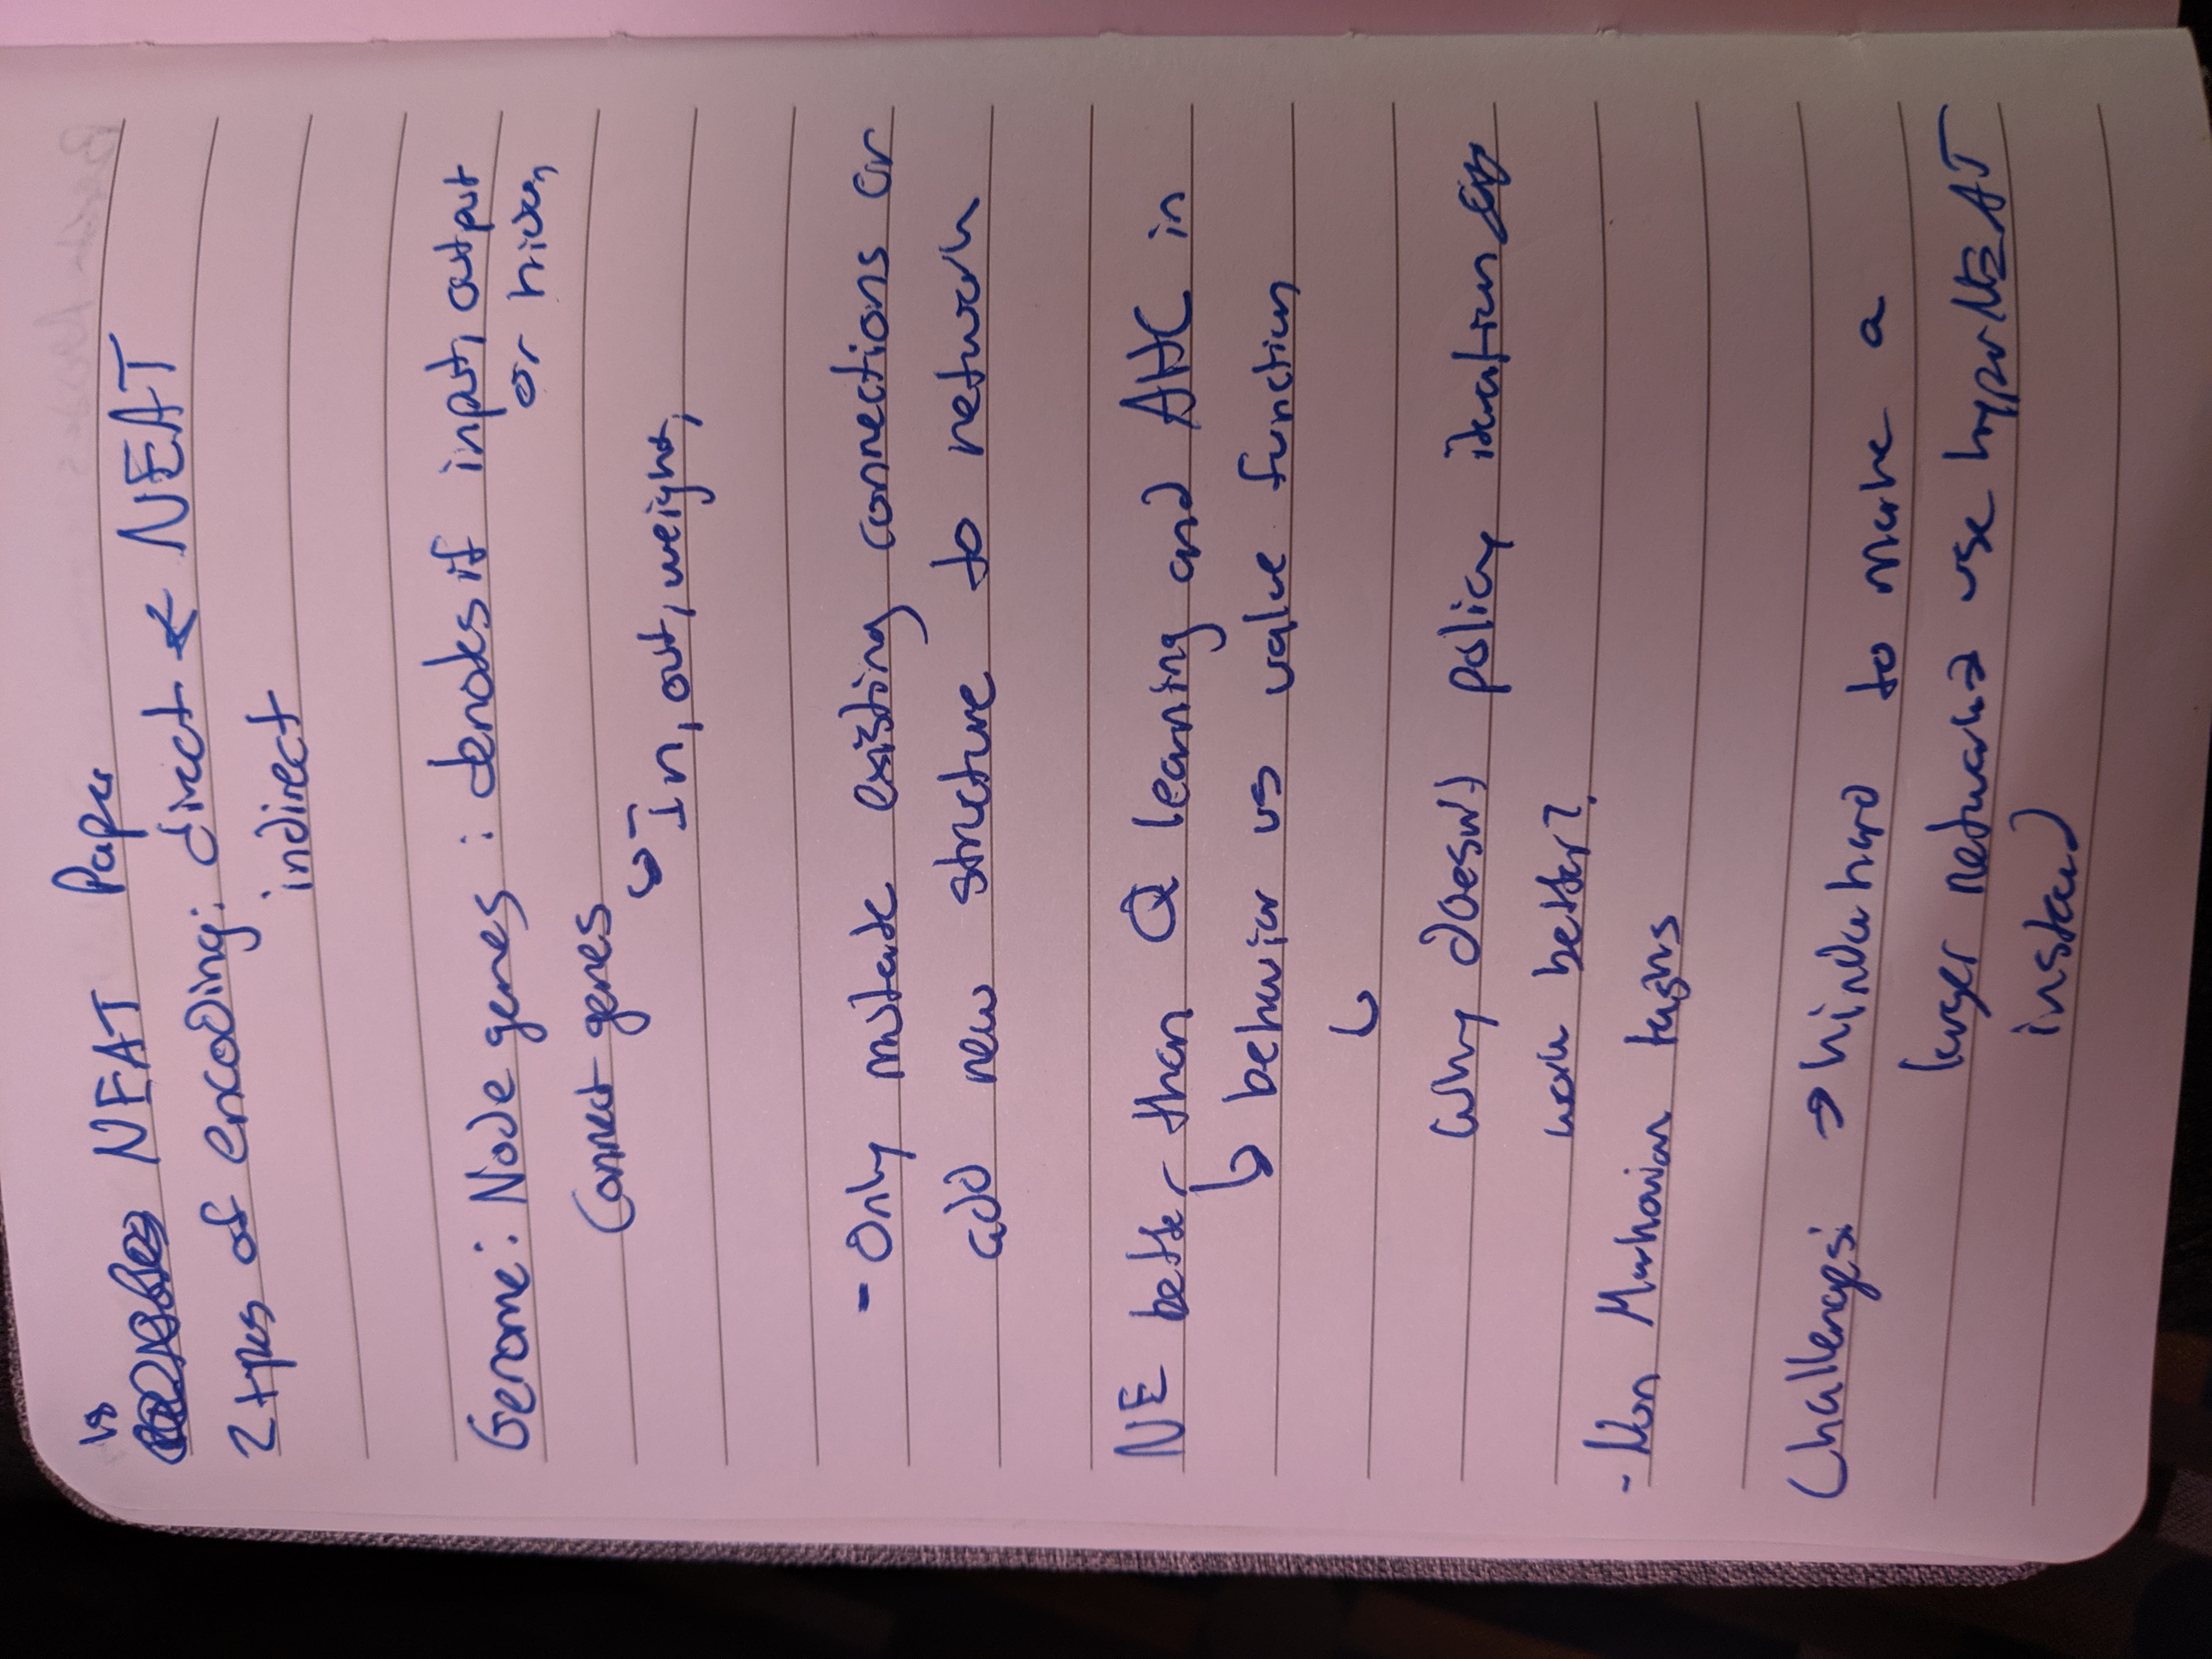 18
NEAT Paper
2 types of encoding: direct ← NEAT
indirect
Genome: Node genes : denotes if input, output
or hidden
Connect genes
↳ In, out, weight,
- Only mutate existing connections or
add new structure to network
NE better than Q learning and AHC in
↳ behavior vs value function
↳
Why doesn't policy iteration
work better?
- Non Markovian tasks
Challenges: → kinda hard to make a
larger network → use hyperNEAT
instead